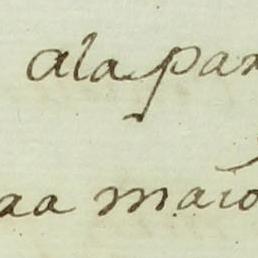 ala par
aa maio